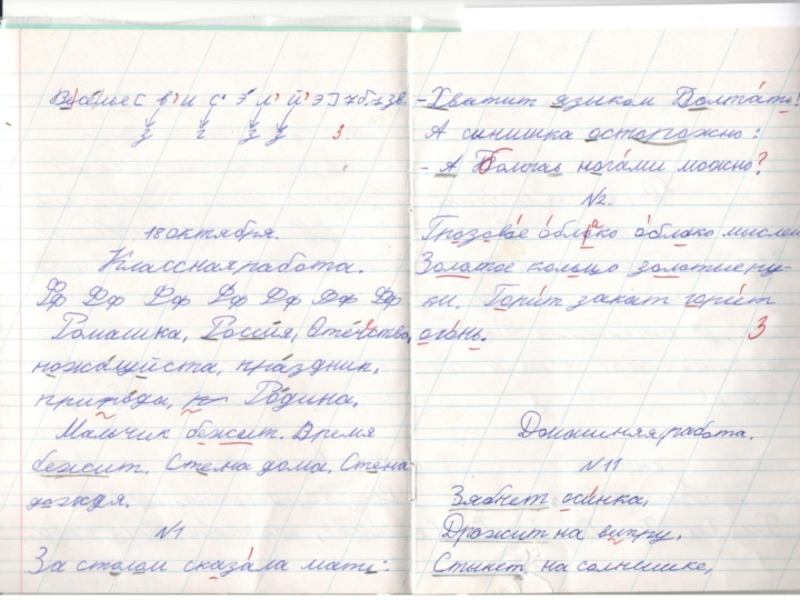 Весёлые [ в' и с' э л' й' э ] 7б. 7 зв.
з г з з 3.
18 октября.
Классная работа.
Фф Фф Фф Фф Фф Фф Фф
Ромашка, Россия, Отечество,
пожалуйста, праздник,
природа, Родина.
Мальчик бежит. Время
бежит. Стена дома. Стена
дождя.
№1
За столом сказала мать:
- Хватит языком Болтать!
А сынишка осторожно:
- А Болтать ногами можно?
№2.
Грозовое облако облако мыслей
Золотое кольцо золотые ру-
ки. Горит закат горит
огонь. 3
Домашняя работа.
№11
Зябнет осинка,
Дрожит на витру,
Стынет на солнышке,